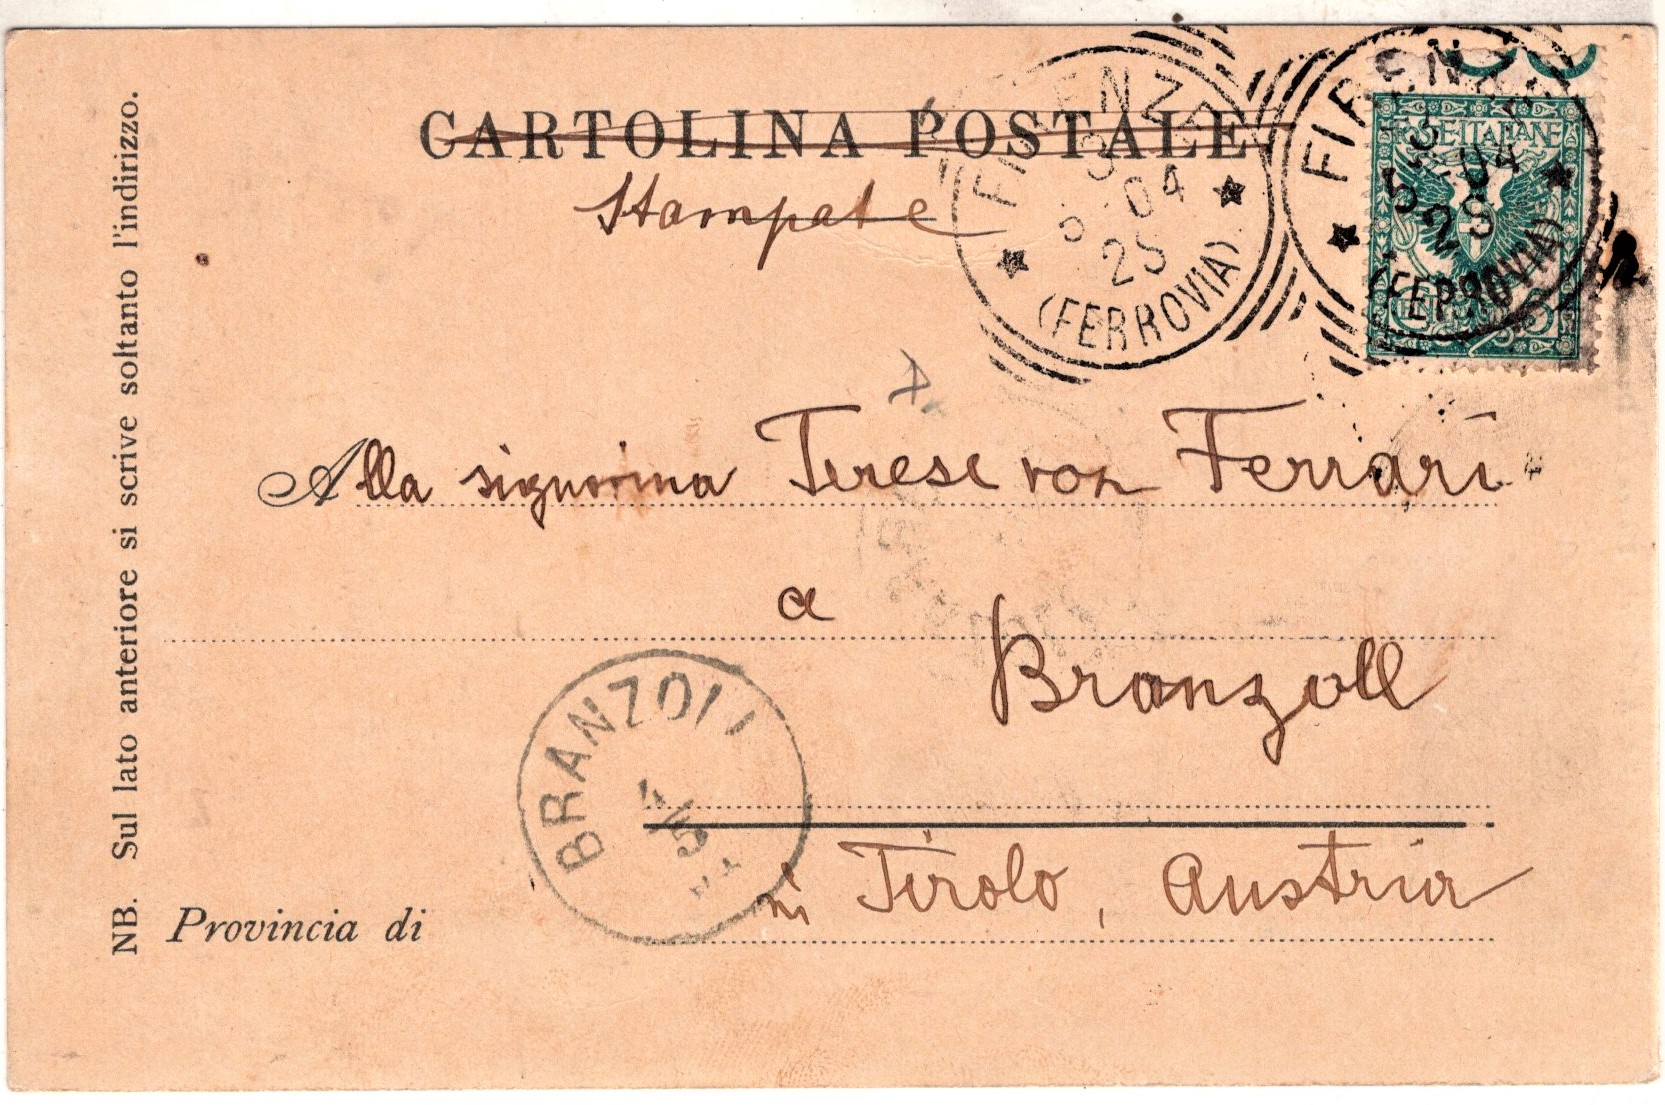 NB. Sul lato anteriore si scrive soltanto l'indirizzo.
CARTOLINA POSTALE
Stampate
FIRENZE
3 5 04
2S
(FERROVIA)
FIRENZE
3 5 04
2S
(FERROVIA)
POSTE ITALIANE
CENT
5
Alla signorina Terese von Ferrari
a
Branzoll
in Tirolo, Austria
Provincia di
BRANZOLL
4
5